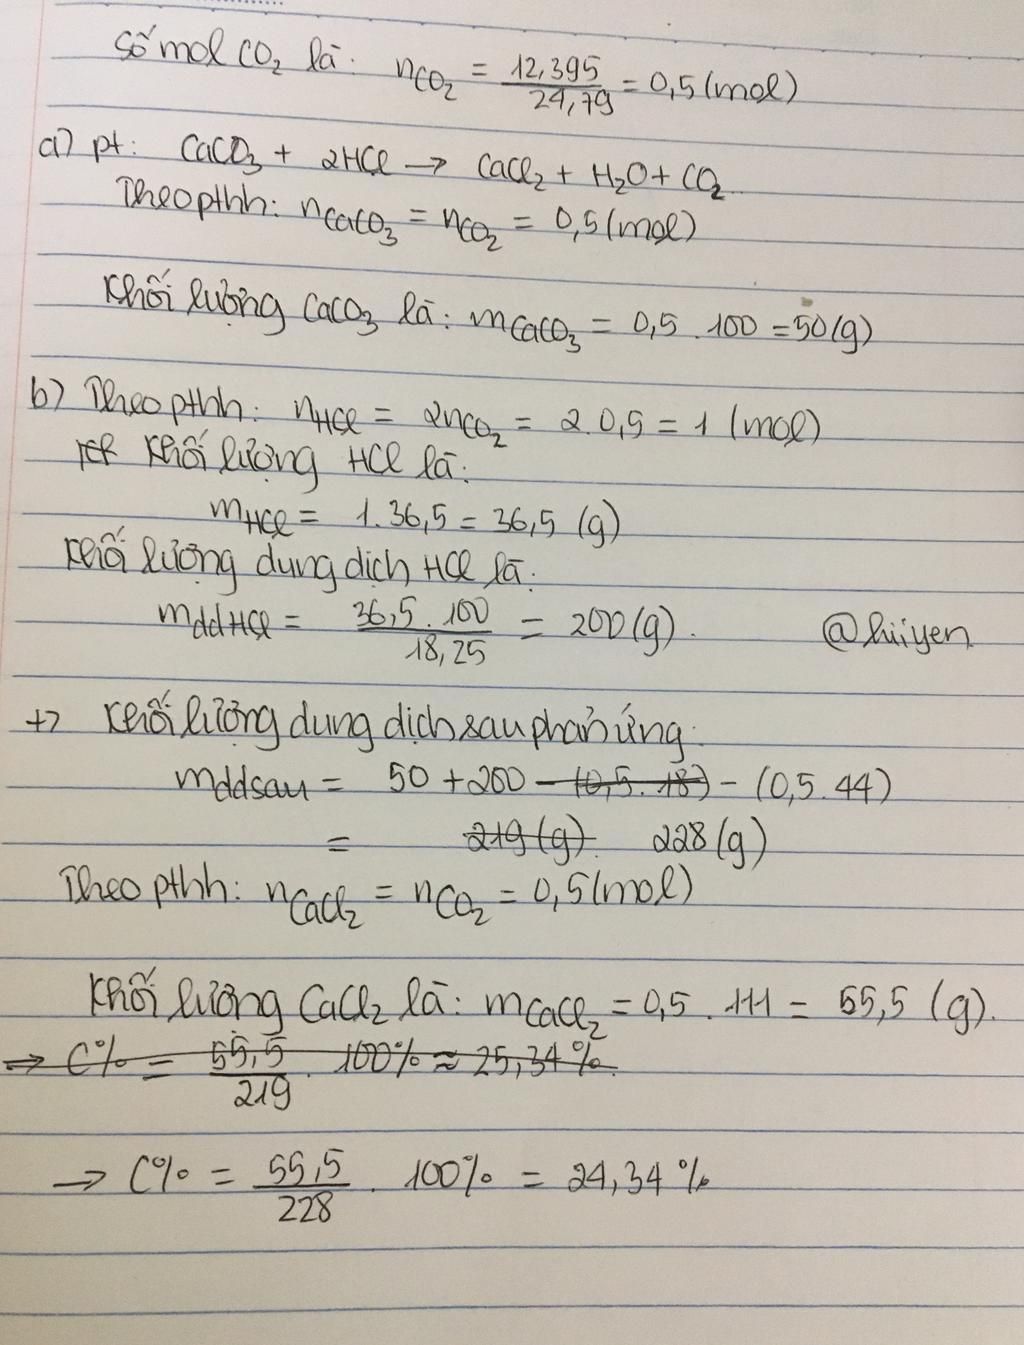 Số mol CO₂ là: nCO₂ = 12,395/24,79 = 0,5 (mol)
a) pt: CaCO₃ + 2HCl → CaCl₂ + H₂O + CO₂
Theo pthh: nCaCO₃ = nCO₂ = 0,5 (mol)
Khối lượng CaCO₃ là: mCaCO₃ = 0,5 . 100 = 50 (g)
b) Theo pthh: nHCl = 2nCO₂ = 2.0,5 = 1 (mol)
Khối lượng HCl là:
mHCl = 1.36,5 = 36,5 (g)
Khối lượng dung dịch HCl là:
mddHCl = 36,5 . 100/18,25 = 200 (g).
@hiiyen
+> Khối lượng dung dịch sau phản ứng:
mddsau = 50 + 200 - (0,5 . 18) - (0,5 . 44)
= 219 (g). 228 (g)
Theo pthh: nCaCl₂ = nCO₂ = 0,5 (mol)
Khối lượng CaCl₂ là: mCaCl₂ = 0,5 . 111 = 55,5 (g).
=> C% = 55,5/219 . 100% ≈ 25,34%.
→ C% = 55,5/228 . 100% = 24,34%